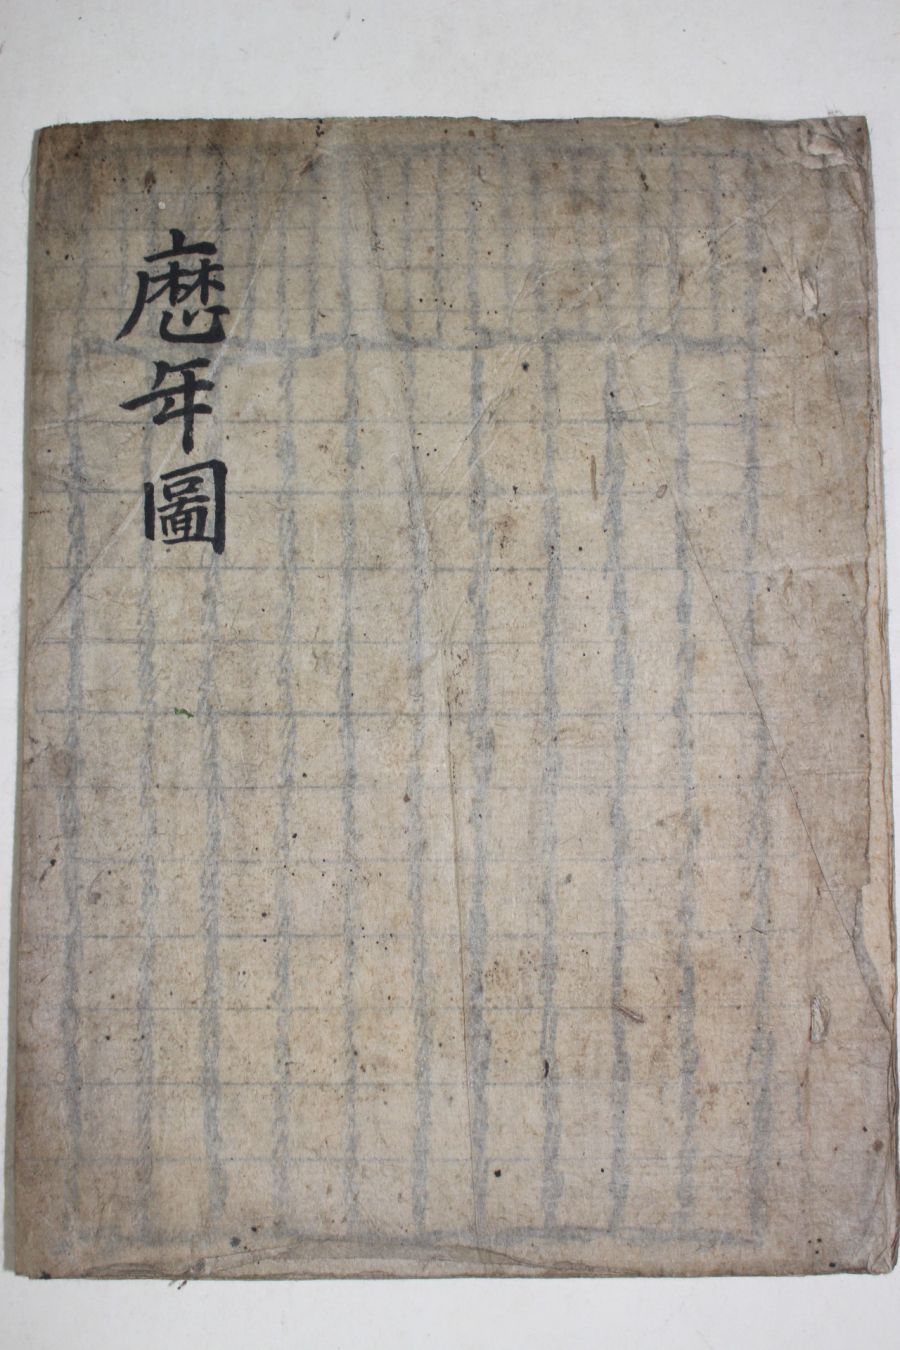 歷年圖